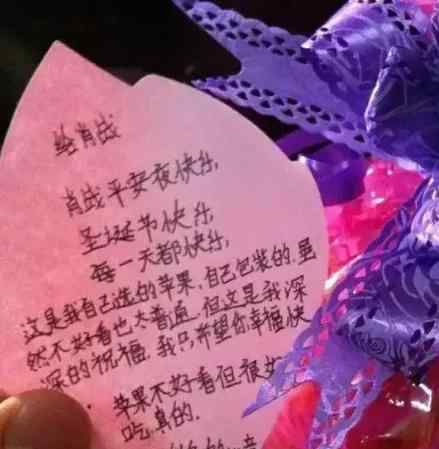 给肖战
肖战平安夜快乐,
圣诞节快乐,
每一天都快乐,
这是我自己选的苹果,自己包装的,虽
然不好看也太普通,但这是我深
深的祝福,我只希望你幸福快
苹果不好看但很好
吃,真的.